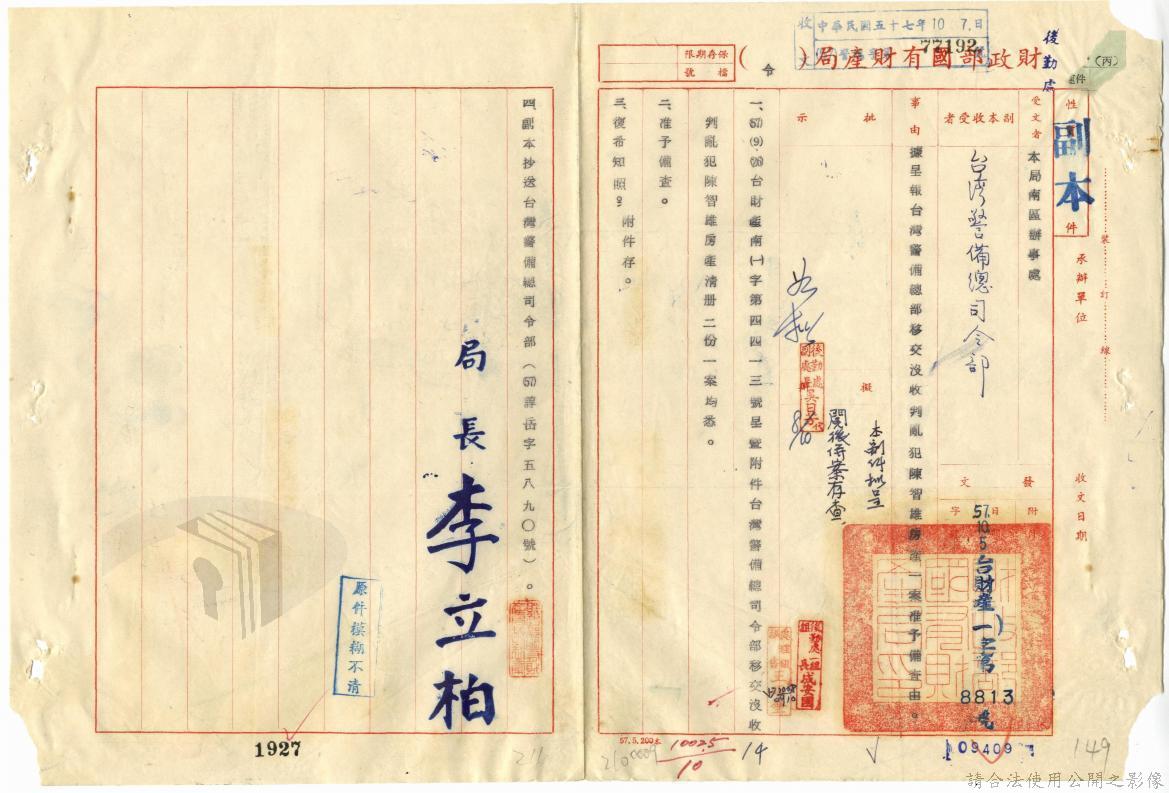 後勤處
(丙)
財政部國有財產局
(
)
令
保存期限
檔號
收文
中華民國五十七年10.7.日
77192
性質
副本
件
裝
訂
線
承辦單位
收文日期
受文者
本局南區辦事處
副本收受者
台灣警備總司令部
發文
附
日
字
57.10.5
台財產一
8813
事由
據呈報台灣警備總部移交沒收判亂犯陳智雄房產一案准予備查由。
批示
擬辦
如擬
本副件擬呈
閱後併案存查
一、(57)(9)(26)台財產南(一)字第四四一三號呈暨附件台灣警備總司令部移交沒收
判亂犯陳智雄房產清册二份一案均悉。
二、准予備查。
三、復希知照。附件存。
四、副本抄送台灣警備總司令部(57)諄岳字五八九〇號)。
局長李立柏
原件模糊不清
1927
57.5.200本
10025
10
14
09409
149
請合法使用公開之影像